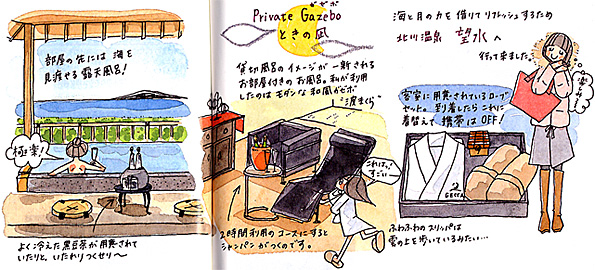 海と月の力を借りてリフレッシュするため
北川温泉 望水へ
行って来ました。
Private Gazebo
ガゼボ
ときの凪
貸切風呂のイメージが一新される
お部屋付きのお風呂。私が利用
したのはモダンな和風ガゼボ
"波まくら"
部屋の先には海を
見渡せる露天風呂!
極楽!
よく冷えた黒豆茶が用意されて
いたりと、いたれりつくせり〜
これはっ!
すごい〜
2時間利用のコースにすると
シャンパンがつくのです。
客室に用意されているローブ
セット。到着したらこれに
着替えて携帯はOFF!
GEKKA
ふわふわのスリッパは
雲の上を歩いているみたい…